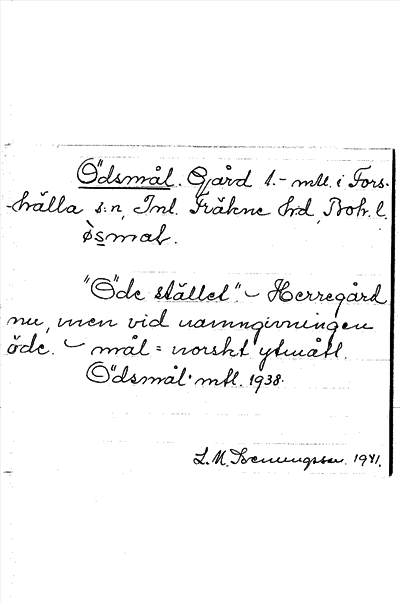 Ödsmål. Gård 1.- mtl. i Fors-
hälla s:n, Inl. Fräkne hd, Boh. l.
òsmaL.
"Öde stället". - Herregård
nu, men vid namngivningen
öde. - mål = norskt ytmått.
Ödsmål. mtl. 1938.
L. M. 1941.